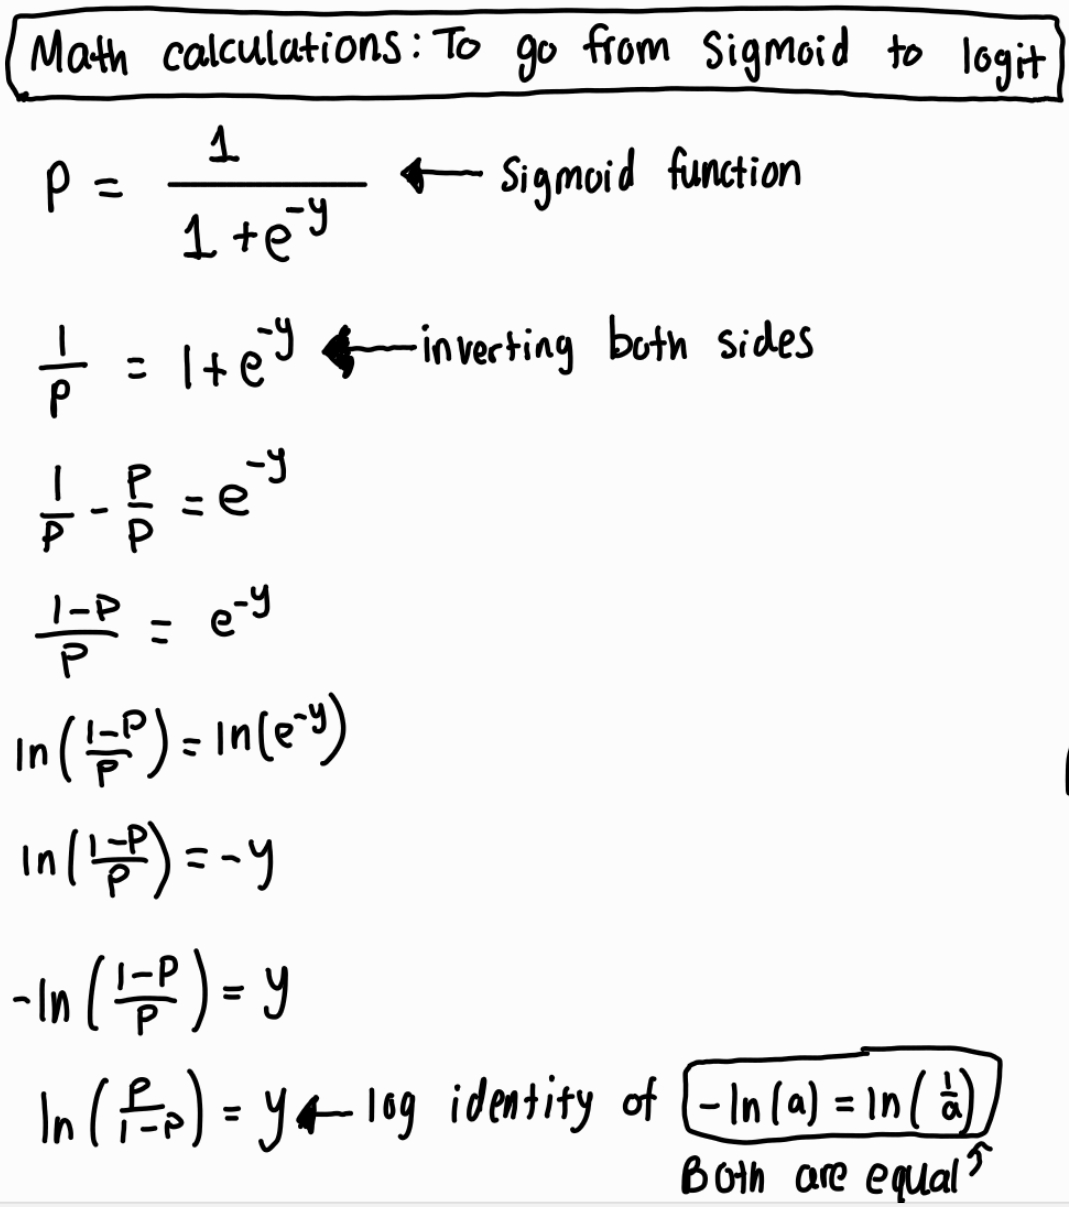 Math calculations: To go from Sigmoid to logit
P = 1/(1+e^-y) ← Sigmoid function
1/P = 1+e^-y ← inverting both sides
1/P - P/P = e^-y
(1-P)/P = e^-y
ln((1-P)/P) = ln(e^-y)
ln((1-P)/P) = -y
-ln((1-P)/P) = y
ln(P/(1-P)) = y ← log identity of -ln(a) = ln(1/a)
Both are equal ↑